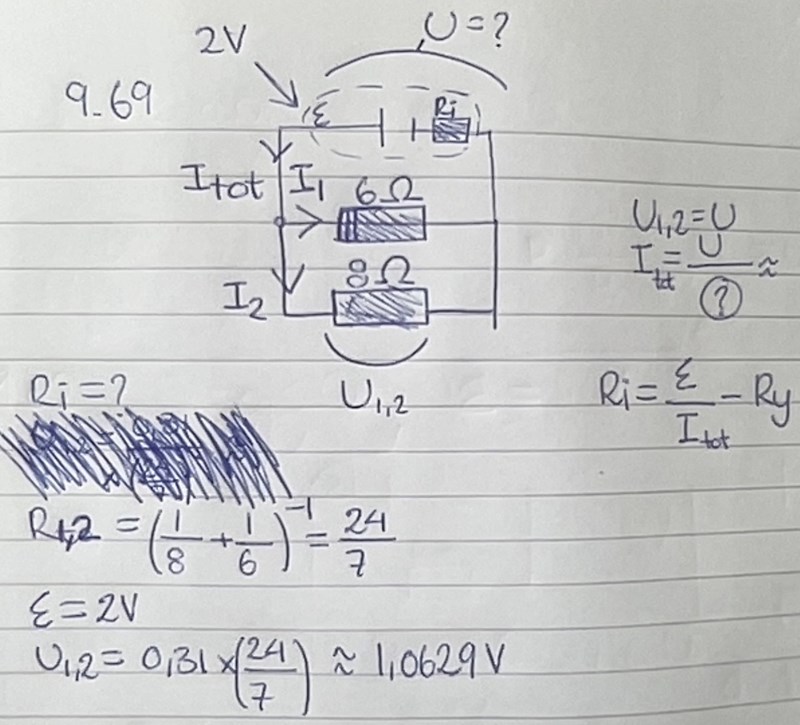 U=?
2V
9.69
ε
Ri
Itot
I1
6Ω
8Ω
I2
U1,2
U1,2=U
Itot=U/? ≈
Ri=?
Ri=ε/Itot-Ry
R1,2=(1/8+1/6)^-1=24/7
ε=2V
U1,2=0,31×(24/7)≈1,0629V